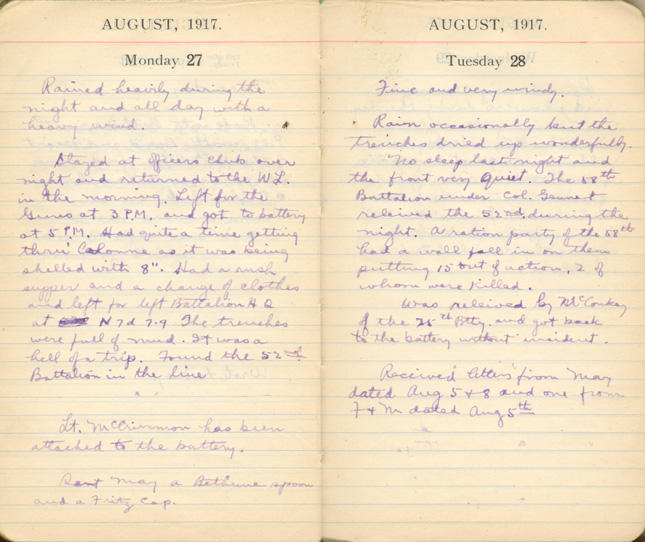 AUGUST, 1917.
Monday 27
Rained heavily during the
night and all day with a
heavy wind.
Stayed at officers club over
night and returned to the W.L.
in the morning. Left for the
Guns at 3 P.M. and got to battery
at 5 P.M. Had quite a time getting
thru' Calonne as it was being
shelled with 8". Had a rush
supper and a change of clothes
and left for left Battalion H Q
at N 7 d 7.9 The trenches
were full of mud. It was a
hell of a trip. Found the 52nd
Battalion in the line
Lt. McCrimmon has been
attached to the battery.
Sent May a Bethune spoon
and a Fritz Cap.
AUGUST, 1917.
Tuesday 28
Fine and very windy.
Rain occasionally but the
trenches dried up wonderfully.
No sleep last night and
the front very quiet. The 58th
Battalion under Col. Genet
relieved the 52nd. during the
night. A ration party of the 58th
had a wall fall in on them
putting 15 out of action, 2 of
whom were killed.
Was relieved by McConkey
of the 25th Btty. and got back
to the battery without incident.
Received letters from May
dated Aug 5 & 8 and one from
F & M dated Aug 5th